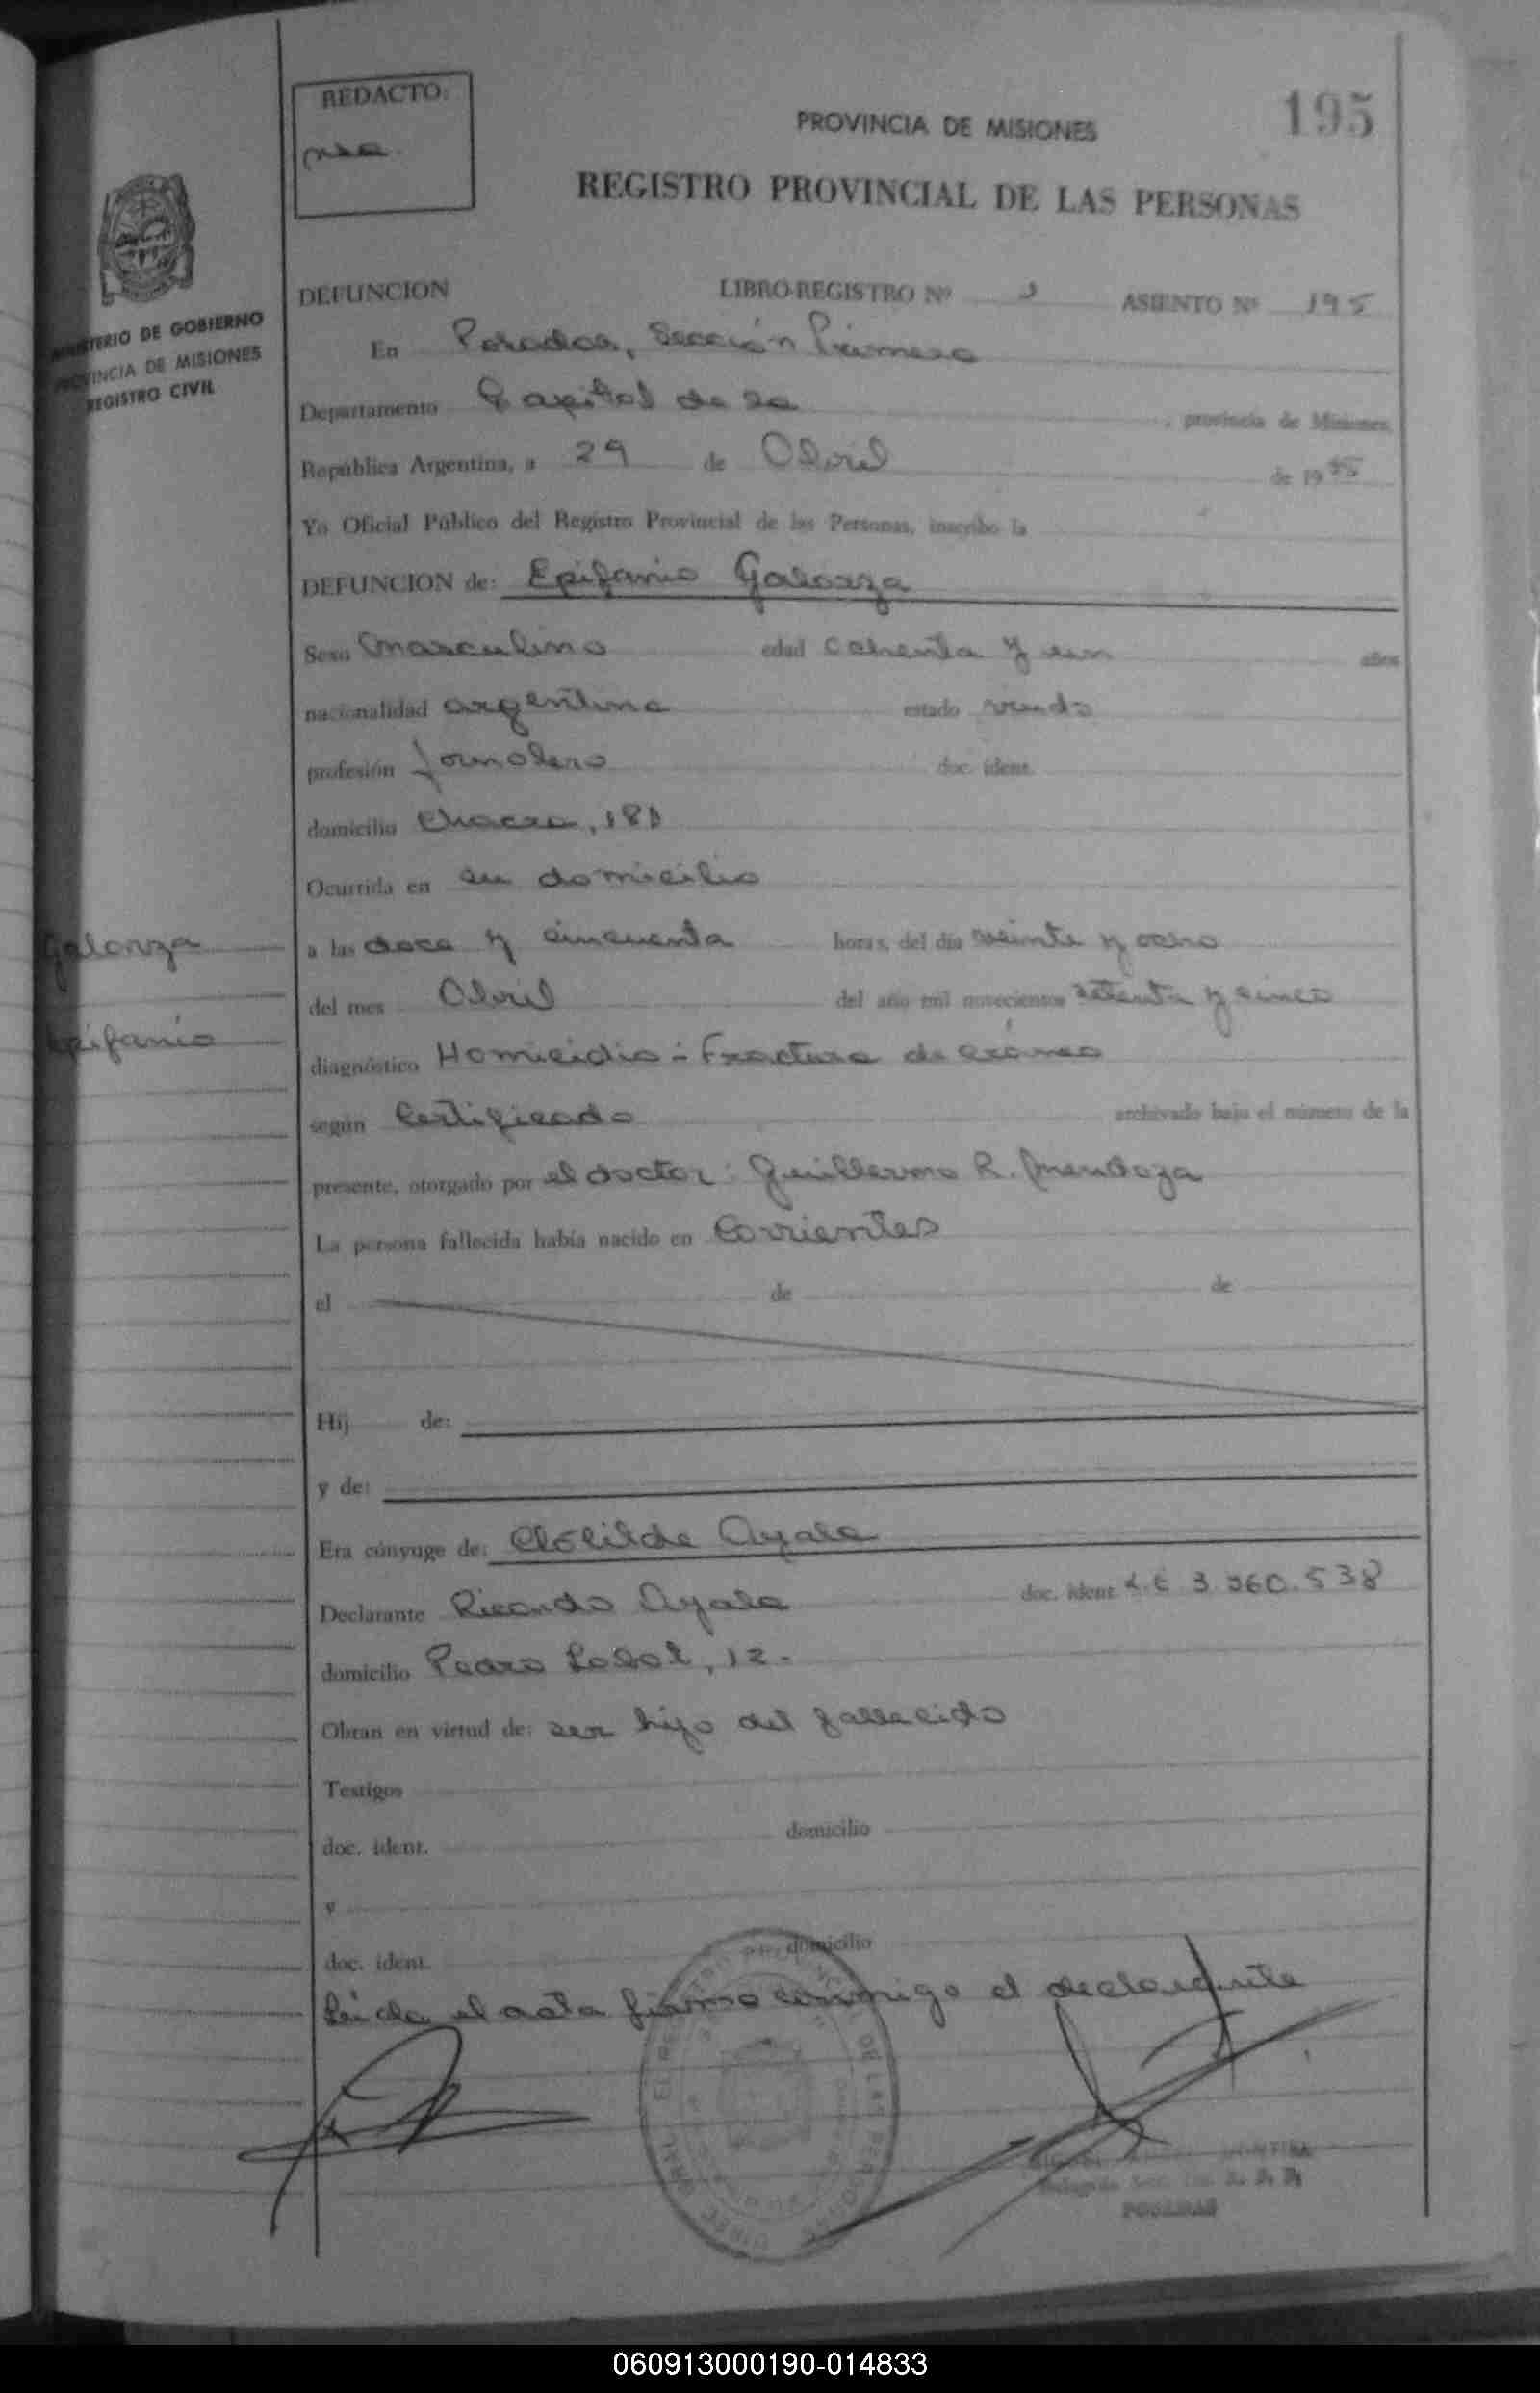 REDACTO:
PROVINCIA DE MISIONES
195
REGISTRO PROVINCIAL DE LAS PERSONAS
MINISTERIO DE GOBIERNO
PROVINCIA DE MISIONES
REGISTRO CIVIL
DEFUNCION LIBRO-REGISTRO Nº ASIENTO Nº 195
En Posadas, Sección Primera
Departamento Capital de la , provincia de Misiones,
República Argentina, a 29 de Abril de 1975
Yo Oficial Público del Registro Provincial de las Personas, inscribo la
DEFUNCION de: Epifanio Galarza
Sexo masculino edad años
nacionalidad argentina estado viudo
profesión jornalero doc. ident.
domicilio Chacra, 181
Ocurrida en su domicilio
a las doce y cincuenta horas, del día veinte y ocho
del mes Abril del año mil novecientos setenta y cinco
diagnóstico Homicidio - Fractura de cráneo
según Certificado archivado bajo el número de la
presente, otorgado por el doctor: Guillermo R. Mendoza
La persona fallecida había nacido en Corrientes
el de de
Hij de:
y de:
Era cónyuge de: Clotilde Ayala
Declarante Ricardo Ayala doc. ident. L.E 3.360.538
domicilio Pedro 12.-
Obran en virtud de: ser hijo del fallecido
Testigos
doc. ident. domicilio
y
doc. ident. domicilio
Leida el acta firma conmigo el declarante
Galarza
Epifanio
POSADAS
060913000190-014833